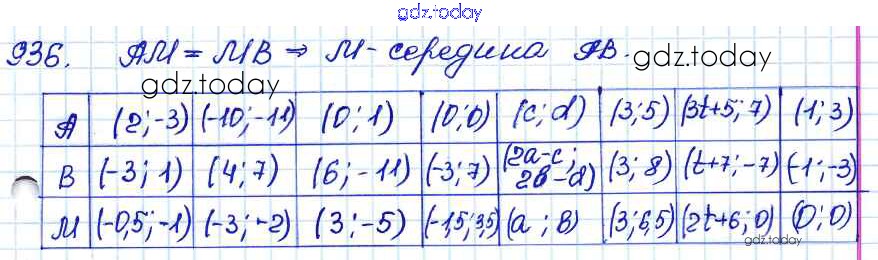 gdz.today
936. AM = MB ⇒ M - середина AB. gdz.today
gdz.today
A (2;-3) (-10;-11) (0;1) (0;0) (c;d) (3;5) (3t+5;7) (1;3)
B (-3;1) (4;7) (6;-11) (-3;7) (2a-c; 2b-d) (3;8) (t+7;-7) (-1;-3)
M (-0,5;-1) (-3;-2) (3;-5) (-1,5;3,5) (a;b) (3;6,5) (2t+6;0) (0;0)
gdz.today